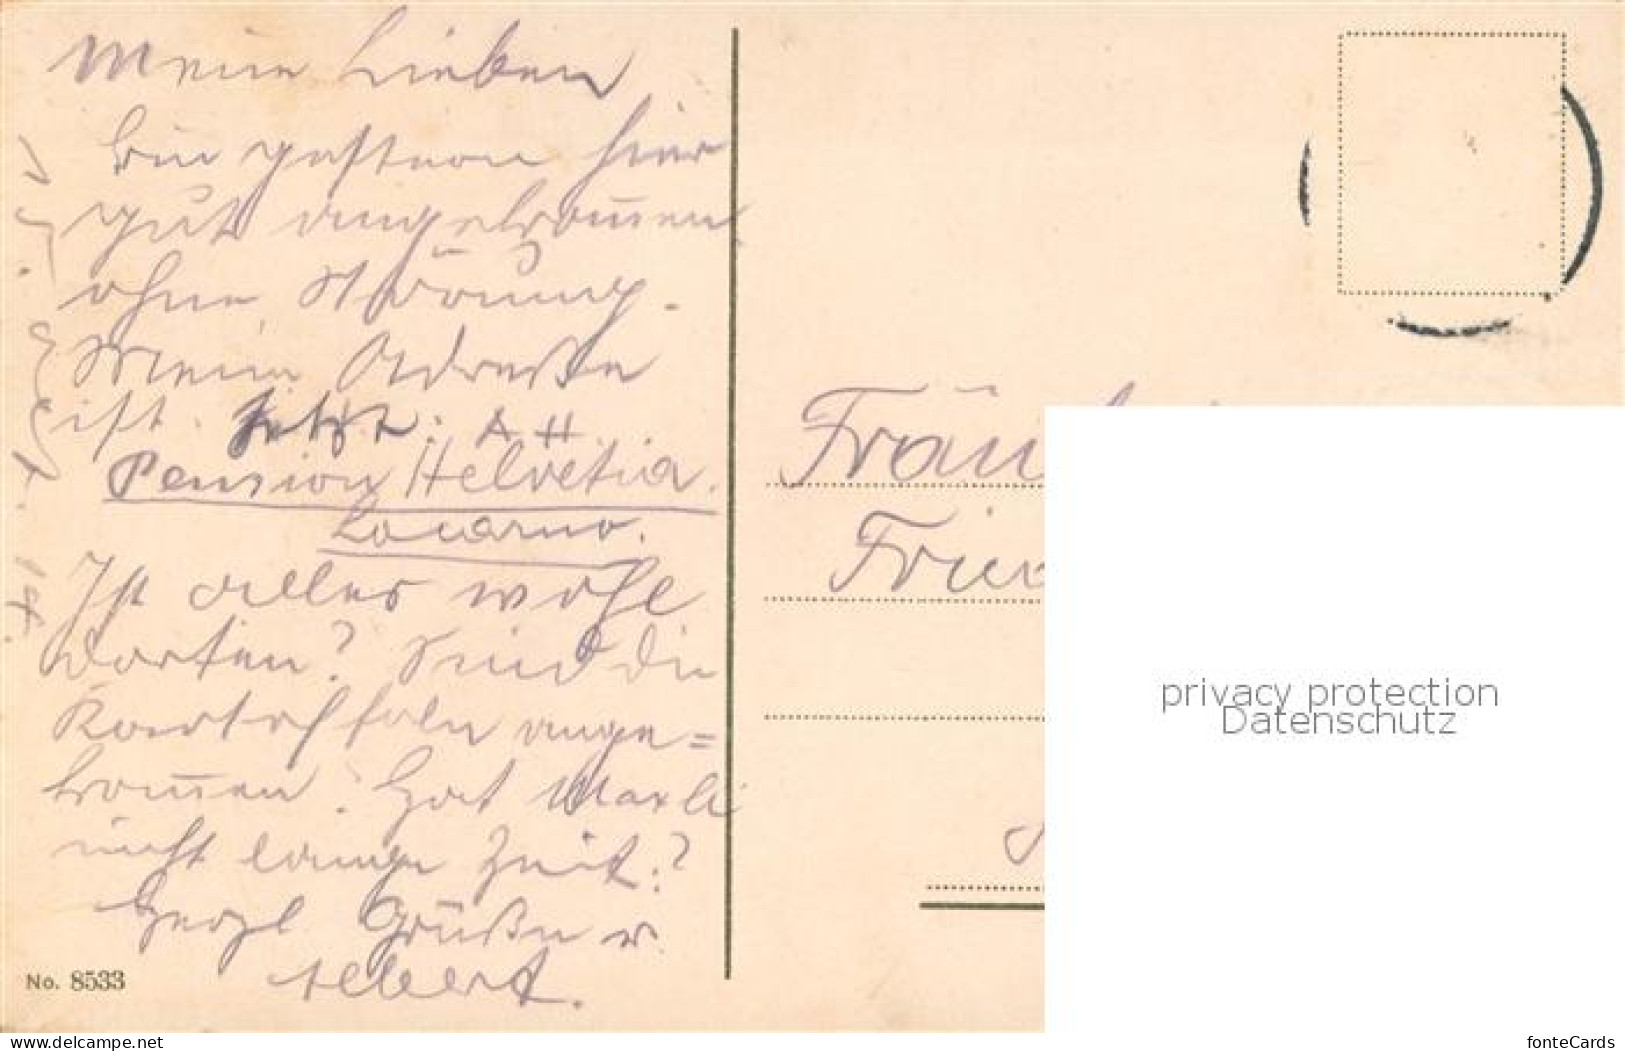 Meine Lieben
bin gestern hier
gut angekom̅en
ohne Störung.
Meine Adreße
ist jetzt: A H
Pension Helvetia.
Locarno.
Ist alles wohl
dorten? Sind die
Kartoffeln ange=
kom̅en. Hat Maxli
nicht lange Zeit.?
Herzl Grüße v.
Albert.
No. 8533
Fräu
Frie
privacy protection
Datenschutz
www.delcampe.net
fonteCards